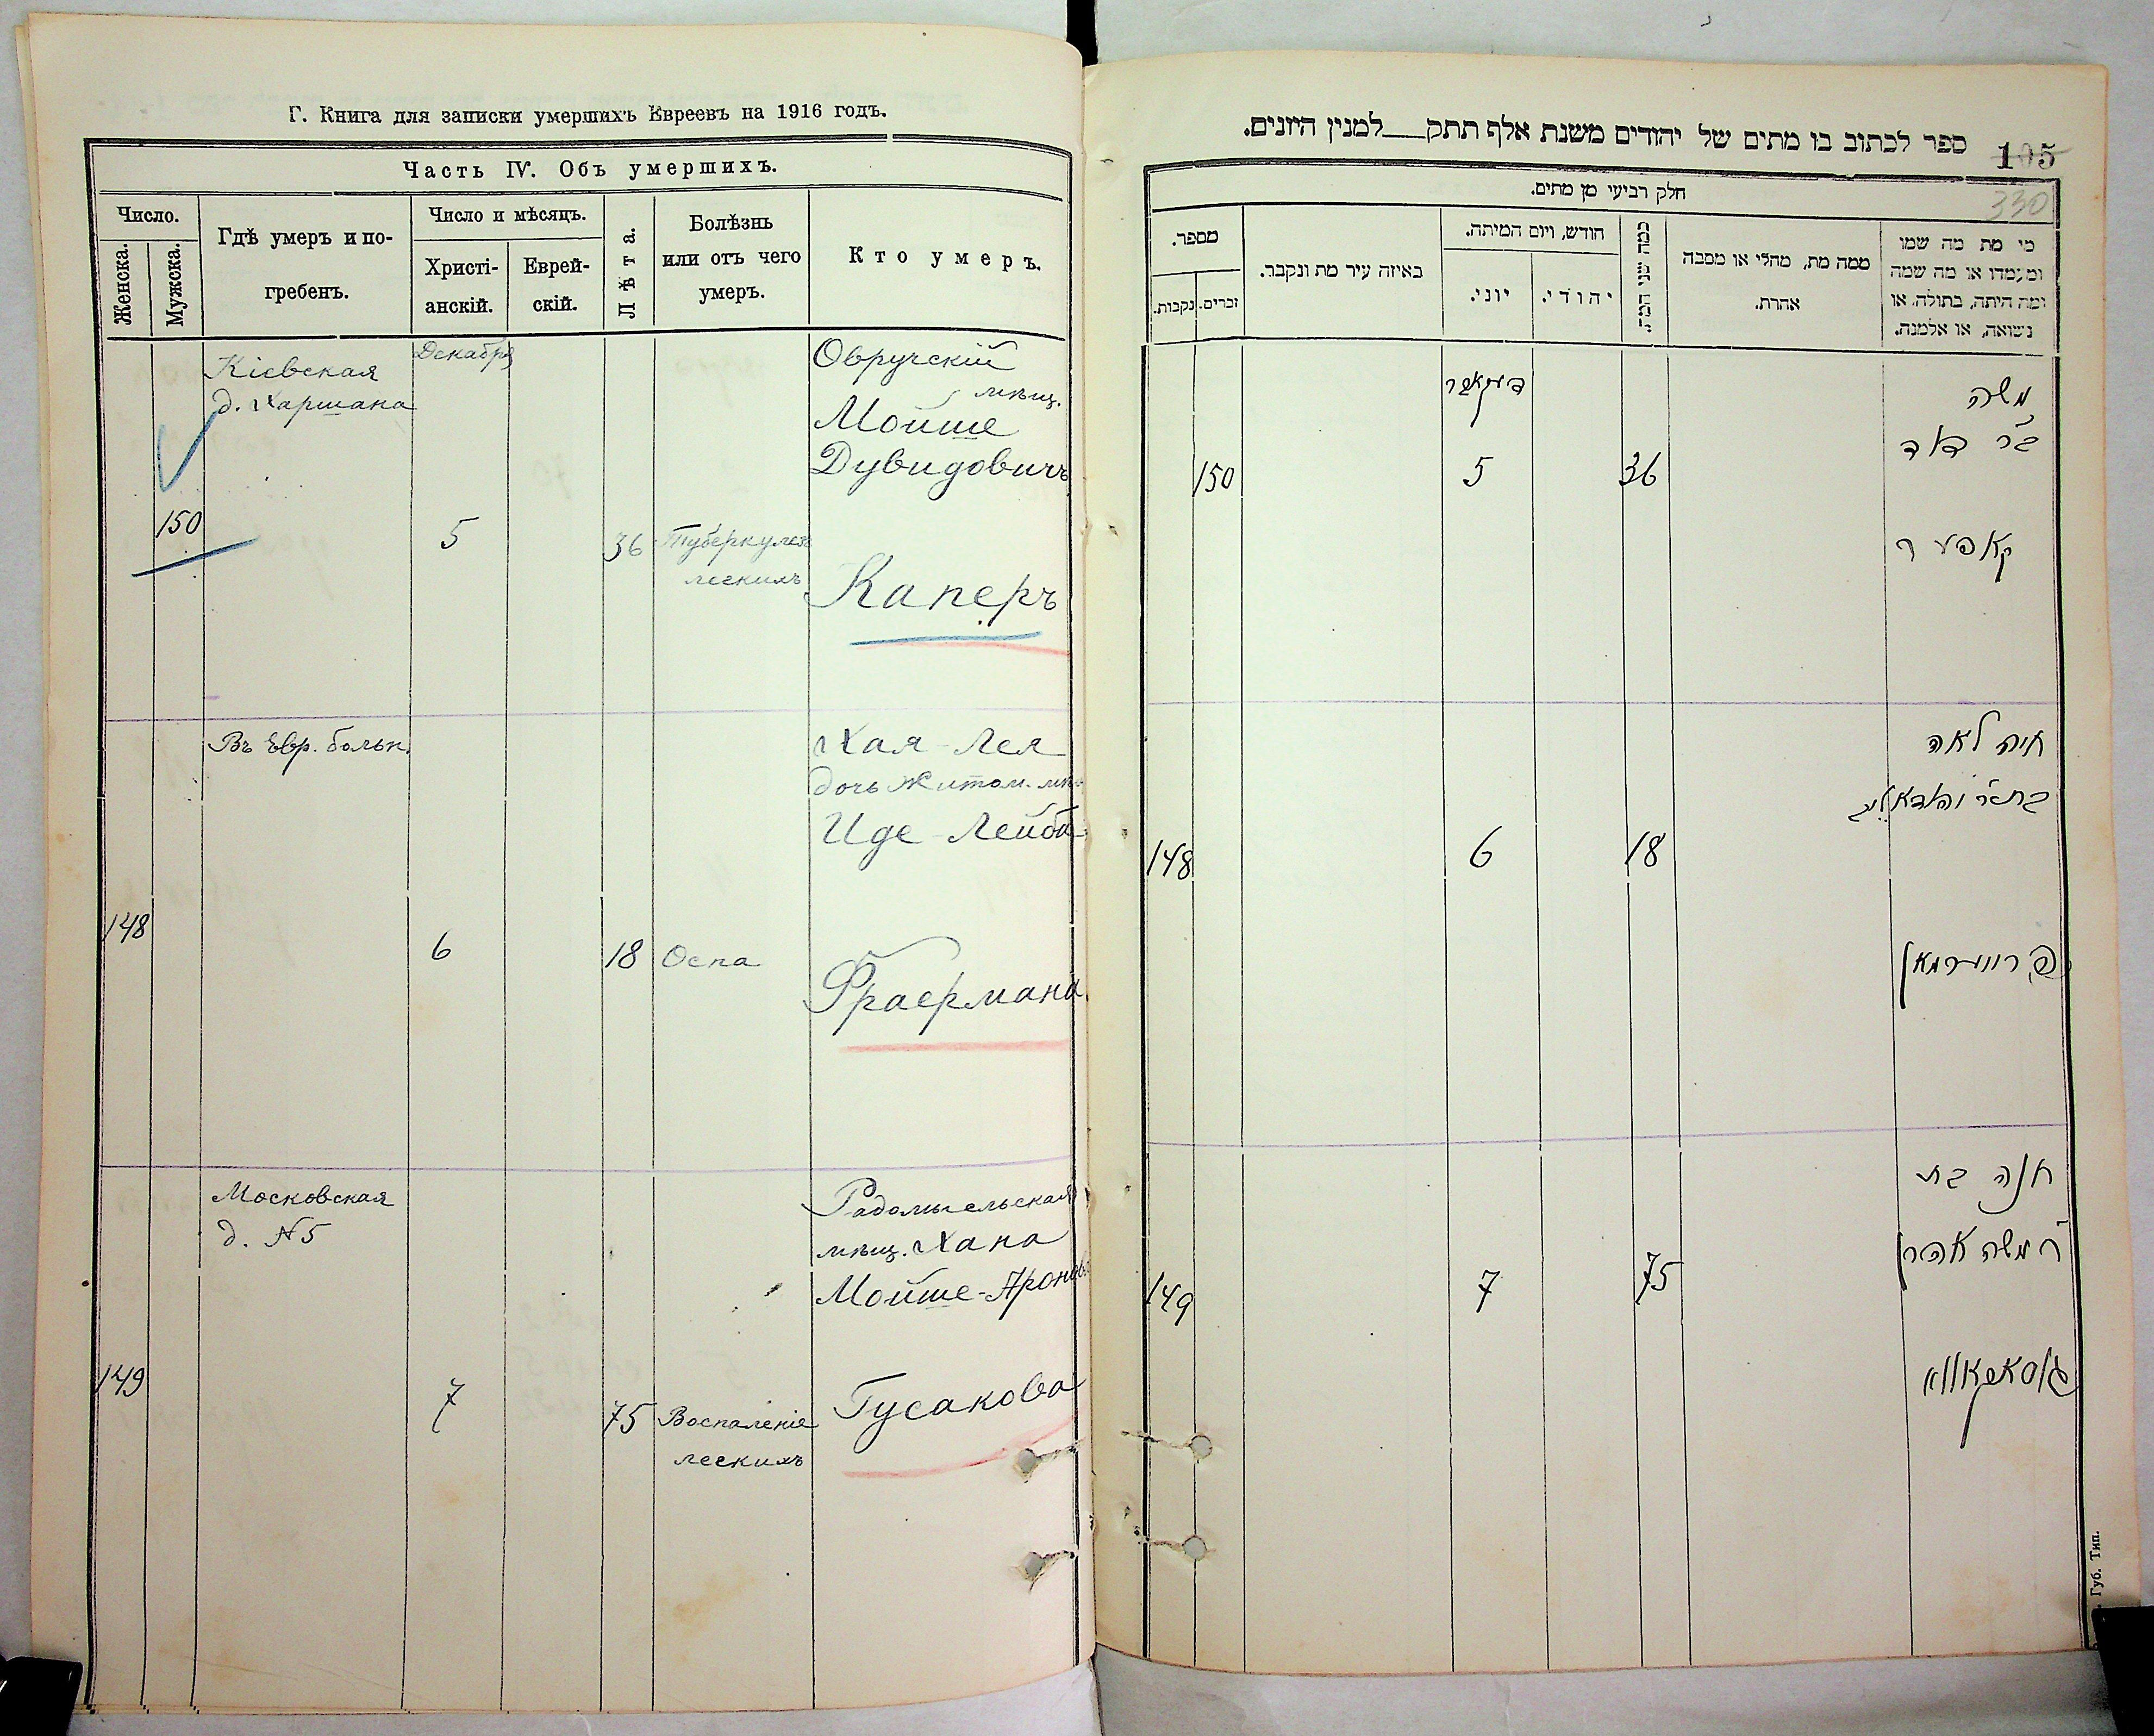 Г. Книга для записки умершихъ Евреевъ на 1916 годъ.
Часть IV. Объ умершихъ.
Число.
Женска.
Мужска.
Гдѣ умеръ и по-
гребенъ.
Число и мѣсяцъ.
Христі-
анскій.
Еврей-
скій.
Лѣта.
Болѣзнь
или отъ чего
умеръ.
Кто умеръ.
Кіевская
д. Харшана
Декабря
150
5
36
Туберкулез
легкихъ
Овручскій
мѣщ.
Мойше
Дувидовичъ
Каперъ
Въ Евр. больн.
148
6
18
Оспа
Хая-Лея
дочь Житом. мѣщ.
Иде-Лейба
Фраермана
Московская
д. №5
149
7
75
Воспаленіе
легкихъ
Радомысльская
мѣщ. Хана
Мойше-Аронова
Гусакова
ספר לכתוב בו מתים של יהודים משנת אלף תתק למנין היונים.
105
330
חלק רביעי מן מתים.
מספר.
נקבות.
זכרים.
באיזה עיר מת ונקבר.
חודש, ויום המיתה.
יוני.
יהודי.
כמה שני המת.
ממה מת, מחלי או מסבה
אחרת.
מי מת מה שמו
ומעמדו או מה שמה
ומה היתה, בתולה, או
נשואה, או אלמנה.
דעקאבר
150
5
36
משה
ב"ר דוד
קאפער
148
6
18
חיה לאה
פרייערמאן
149
7
75
חנה בת
ר' משה אהרן
גוסאקאווא
Губ. Тип.